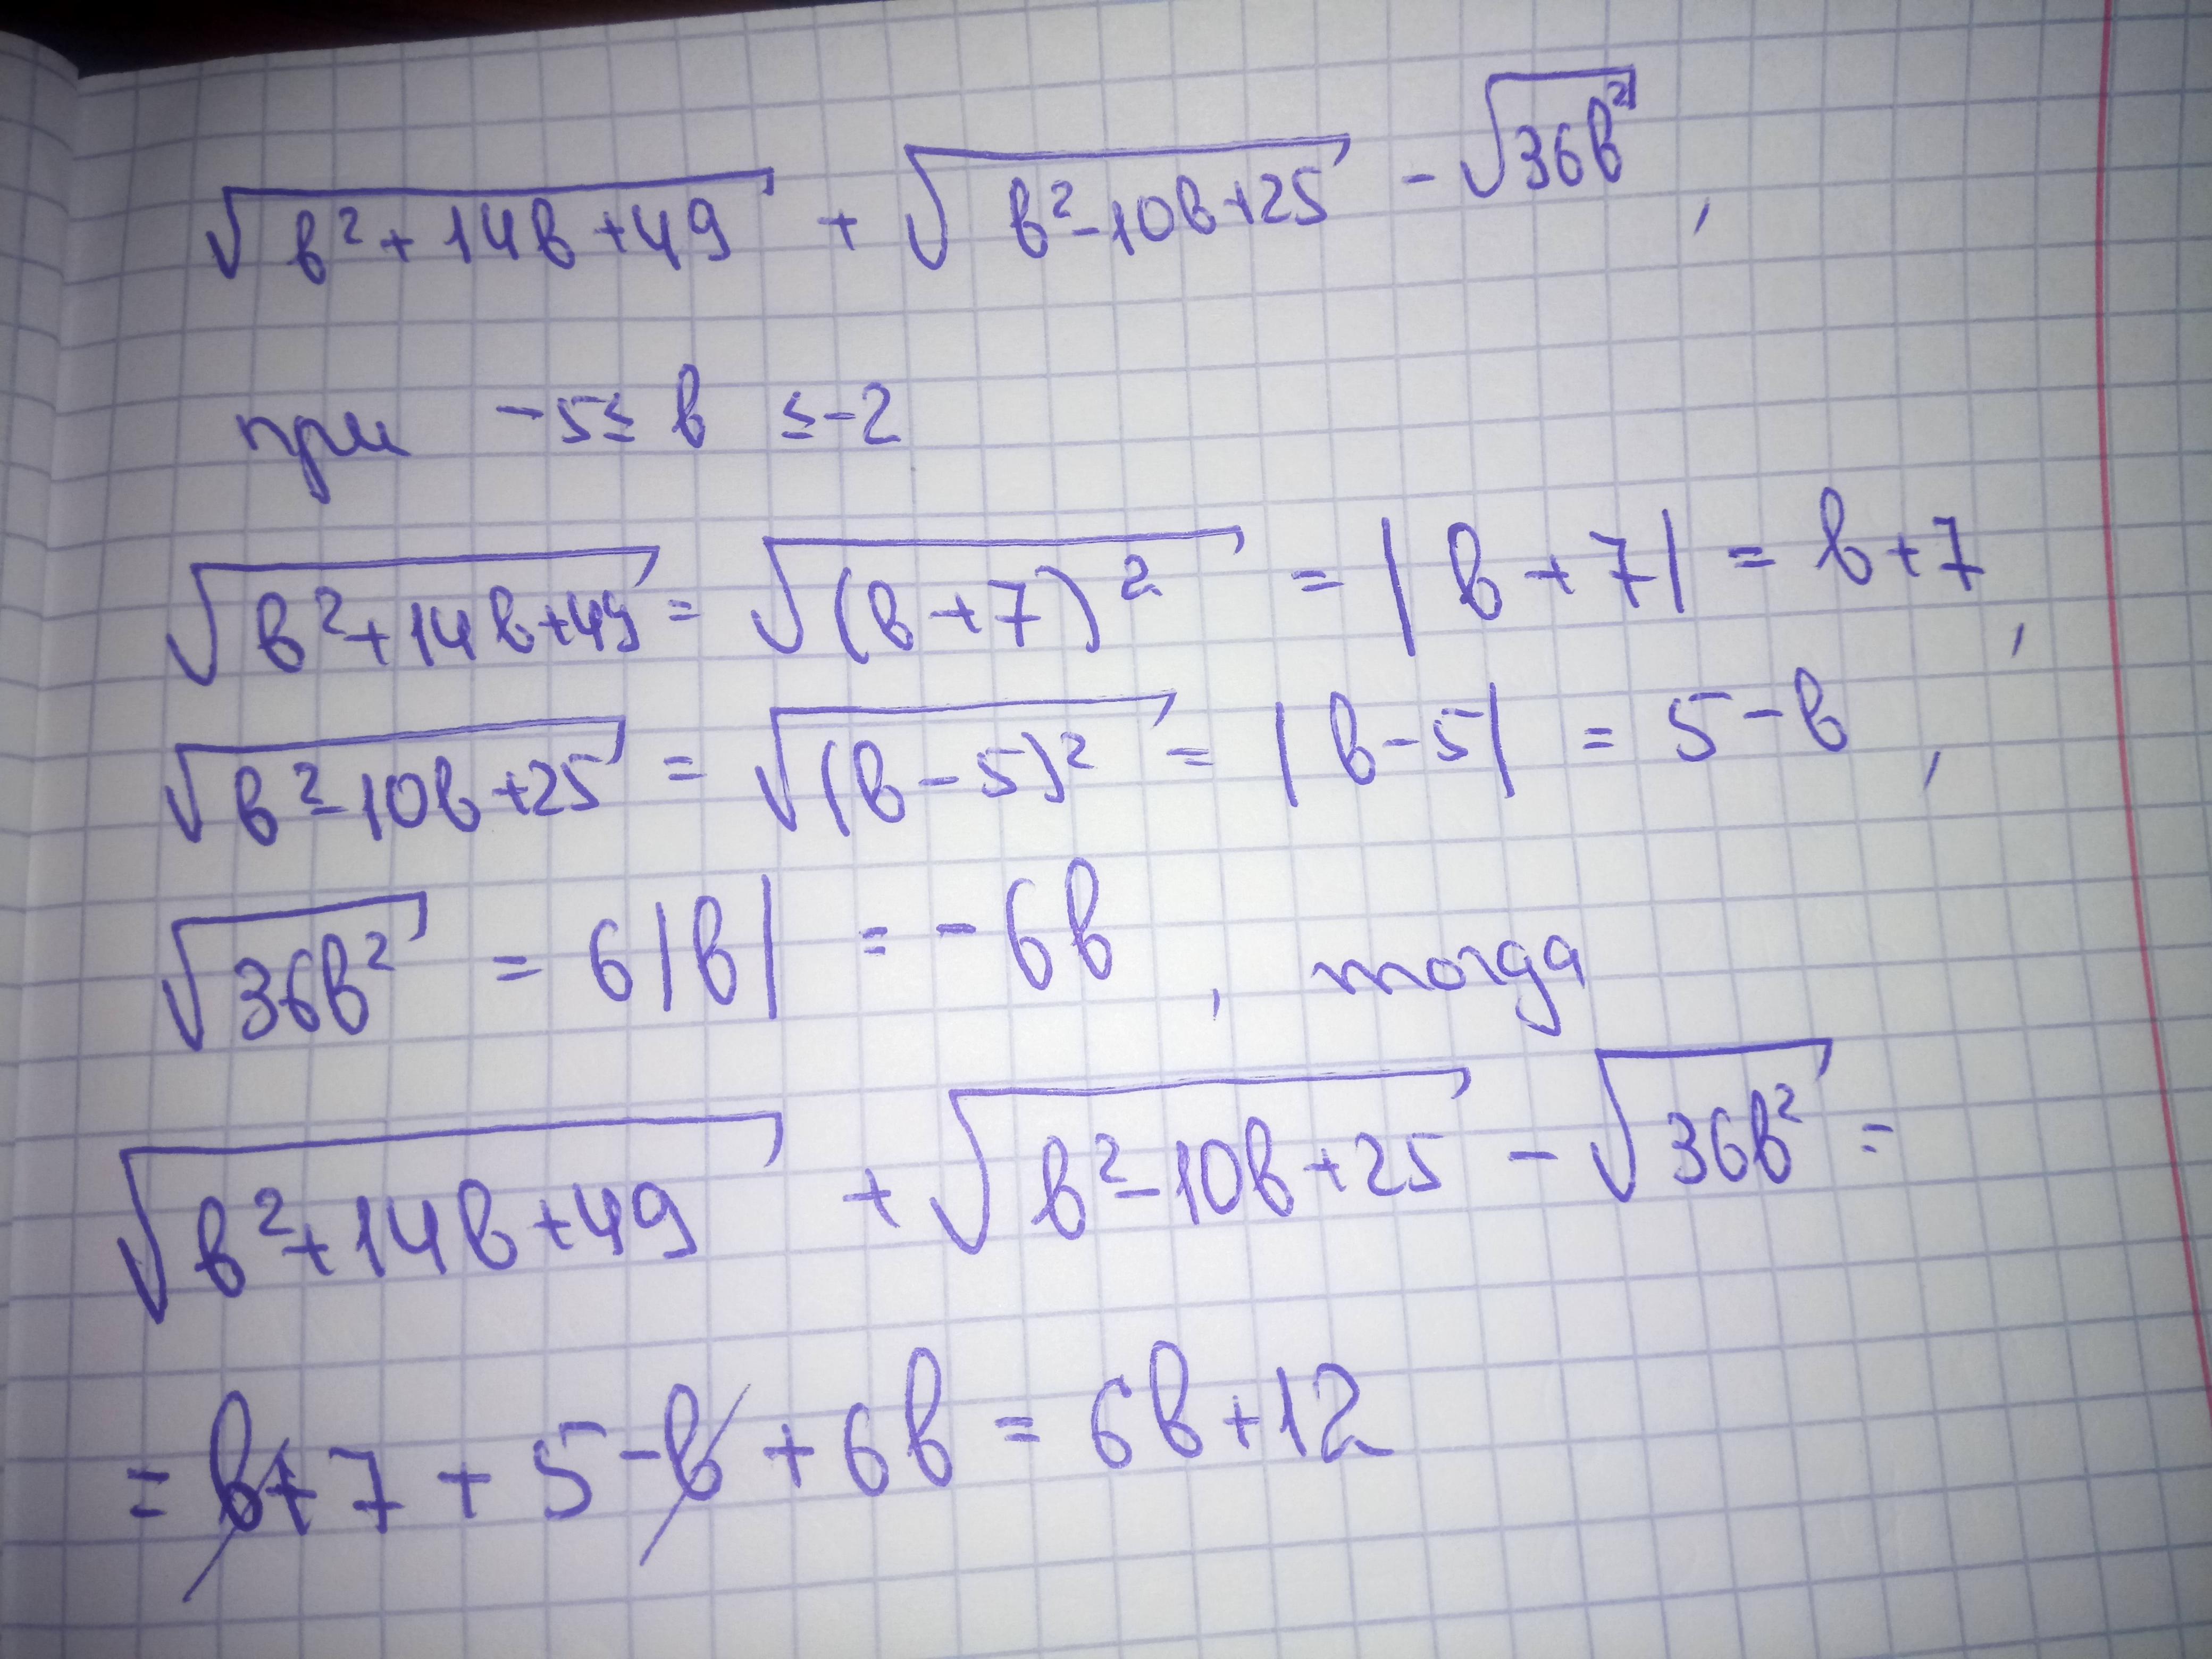 √(b²+14b+49) + √(b²-10b+25) - √(36b²),
при -5≤ b ≤-2
√(b²+14b+49) = √((b+7)²) = |b+7| = b+7,
√(b²-10b+25) = √((b-5)²) = |b-5| = 5-b,
√(36b²) = 6|b| = -6b, тогда
√(b²+14b+49) + √(b²-10b+25) - √(36b²) =
= b+7 + 5-b + 6b = 6b+12